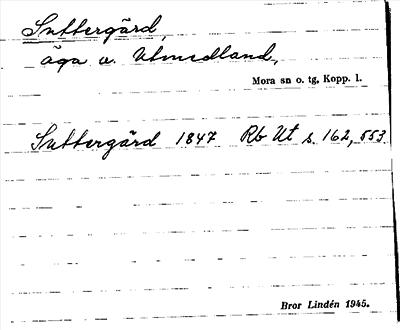 Suttergård,
äga u. Utmedland,
Mora sn o. tg, Kopp. l.
Suttergård 1847 Rb Ut s. 162, 553
Bror Lindén 1945.